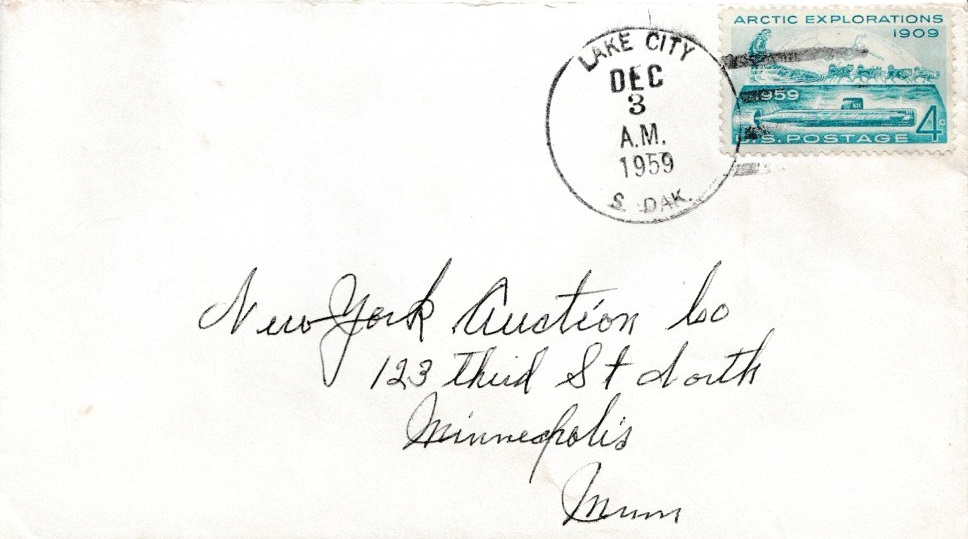 ARCTIC EXPLORATIONS
1909
1959
4c
U.S. POSTAGE
LAKE CITY
DEC
3
A.M.
1959
S. DAK.
New York Auction Co
123 Third St North
Minneapolis
Minn